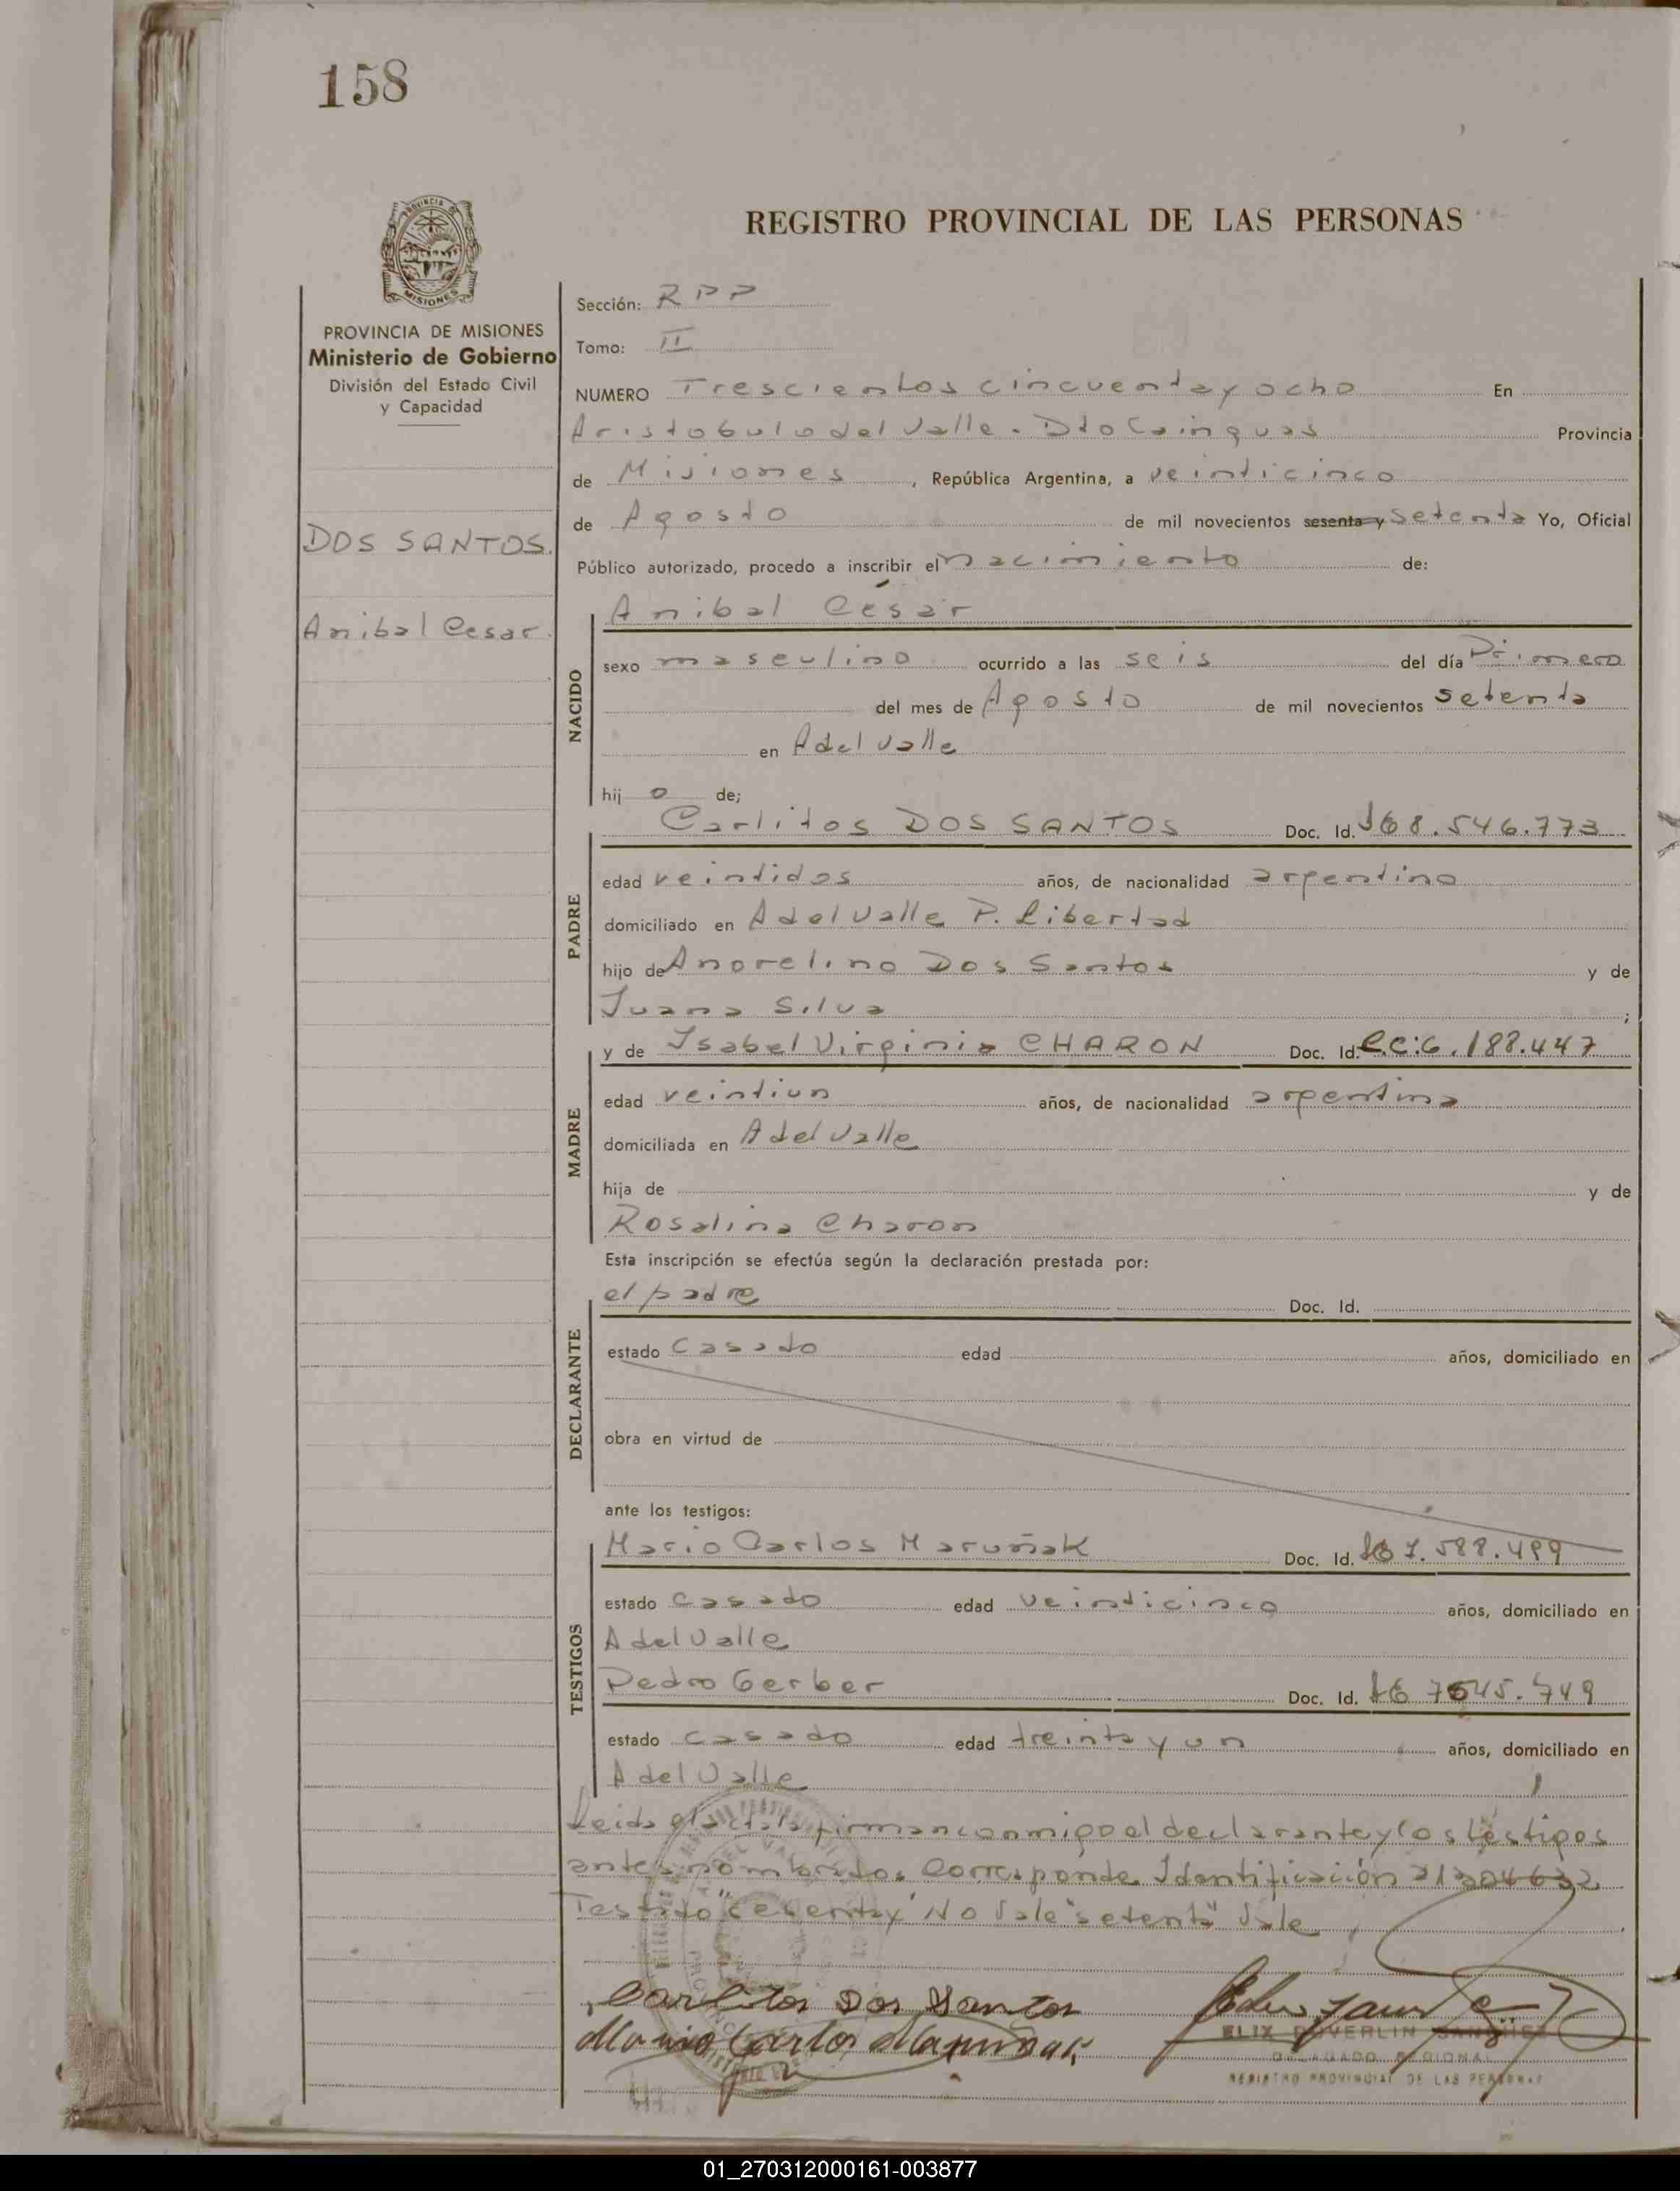 158
REGISTRO PROVINCIAL DE LAS PERSONAS
PROVINCIA DE
MISIONES
PROVINCIA DE MISIONES
Ministerio de Gobierno
División del Estado Civil
y Capacidad
DOS SANTOS.
Anibal Cesar.
Sección: RPP
Tomo: II
NUMERO Trescientos cincuenta y ocho En
Aristobulo del Valle - Dto Cainguas Provincia
de Misiones, República Argentina, a veinticinco
de Agosto de mil novecientos sesenta y setenta Yo, Oficial
Público autorizado, procedo a inscribir el nacimiento de:
NACIDO
Anibal César
sexo masculino ocurrido a las seis del día Primero
del mes de Agosto de mil novecientos setenta
en A del Valle
hij o de;
PADRE
Carlitos DOS SANTOS Doc. Id. 8.546.773
edad veintidos años, de nacionalidad argentino
domiciliado en A del Valle P. Libertad
hijo de Anorelino Dos Santos y de
Juana Silva ;
MADRE
y de Isabel Virginia CHARON Doc. Id. L.C:6.188.447
edad veintiun años, de nacionalidad argentina
domiciliada en A del Valle
hija de y de
Rosalina Charon
Esta inscripción se efectúa según la declaración prestada por:
DECLARANTE
el padre Doc. Id.
estado casado edad años, domiciliado en
obra en virtud de
ante los testigos:
TESTIGOS
Mario Carlos Maruñak Doc. Id. 7.588.499
estado casado edad veinticinco años, domiciliado en
A del Valle
Pedro Gerber Doc. Id.
estado casado edad treinta y un años, domiciliado en
A del Valle
Leida el acta la firman conmigo el declarante y los testigos
antes nombrados. Corresponde Identificación 21304632
Testado "sesenta y" No Vale "setenta" Vale
Carlitos Dos Santos
Mario Carlos Maruñak
DELEGADO REGIONAL
REGISTRO PROVINCIAL DE LAS PERSONAS
01_270312000161-003877